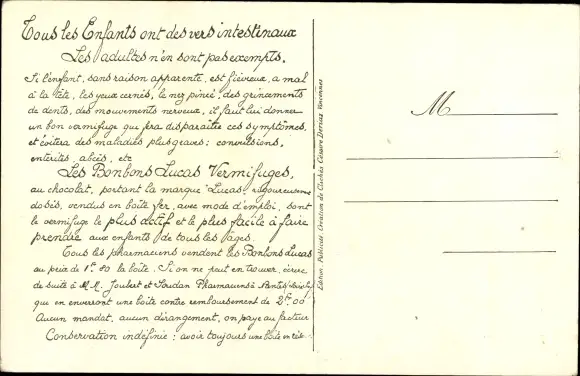 Tous les Enfants ont des vers intestinaux
Les adultes n'en sont pas exempts.
Si l'enfant, sans raison apparente, est fiévreux, a mal
à la tête, les yeux cernés, le nez pincé, des grincements
de dents, des mouvements nerveux, il faut lui donner
un bon vermifuge qui fera disparaître ces symptômes,
et évitera des maladies plus graves: convulsions,
entérites, abcès, etc
Les Bonbons Lucas Vermifuges,
au chocolat, portant la marque "Lucas", rigoureusement
dosés, vendus en boîte fer, avec mode d'emploi, sont
le vermifuge le plus actif et le plus facile à faire
prendre aux enfants de tous les âges.
Tous les pharmaciens vendent les Bonbons Lucas
au prix de 1f. 80 la boîte. Si on ne peut en trouver, écrire
de suite à M.M. Joubert et Pharmaciens à
qui en enverront une boîte contre remboursement de 2fr. 00
Aucun mandat, aucun dérangement, on paye au facteur
Conservation indéfinie: avoir toujours une boîte en
Edition Publicité Création de Clichés Césaire Deriaz Vincennes
M